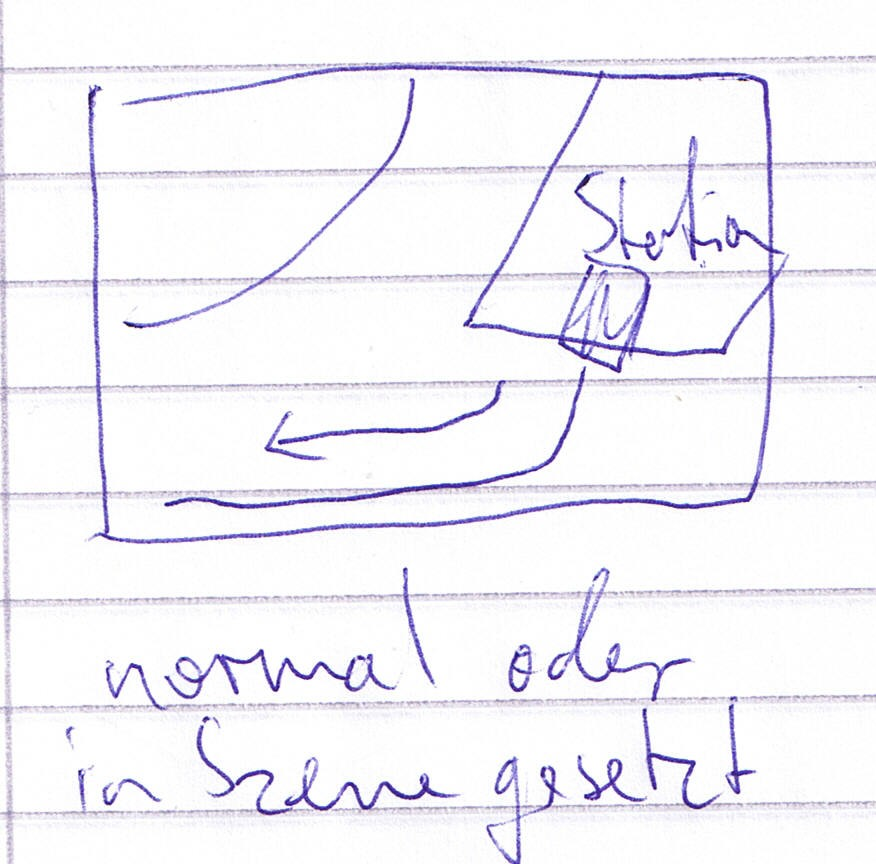 Station
normal oder
in Szene gesetzt